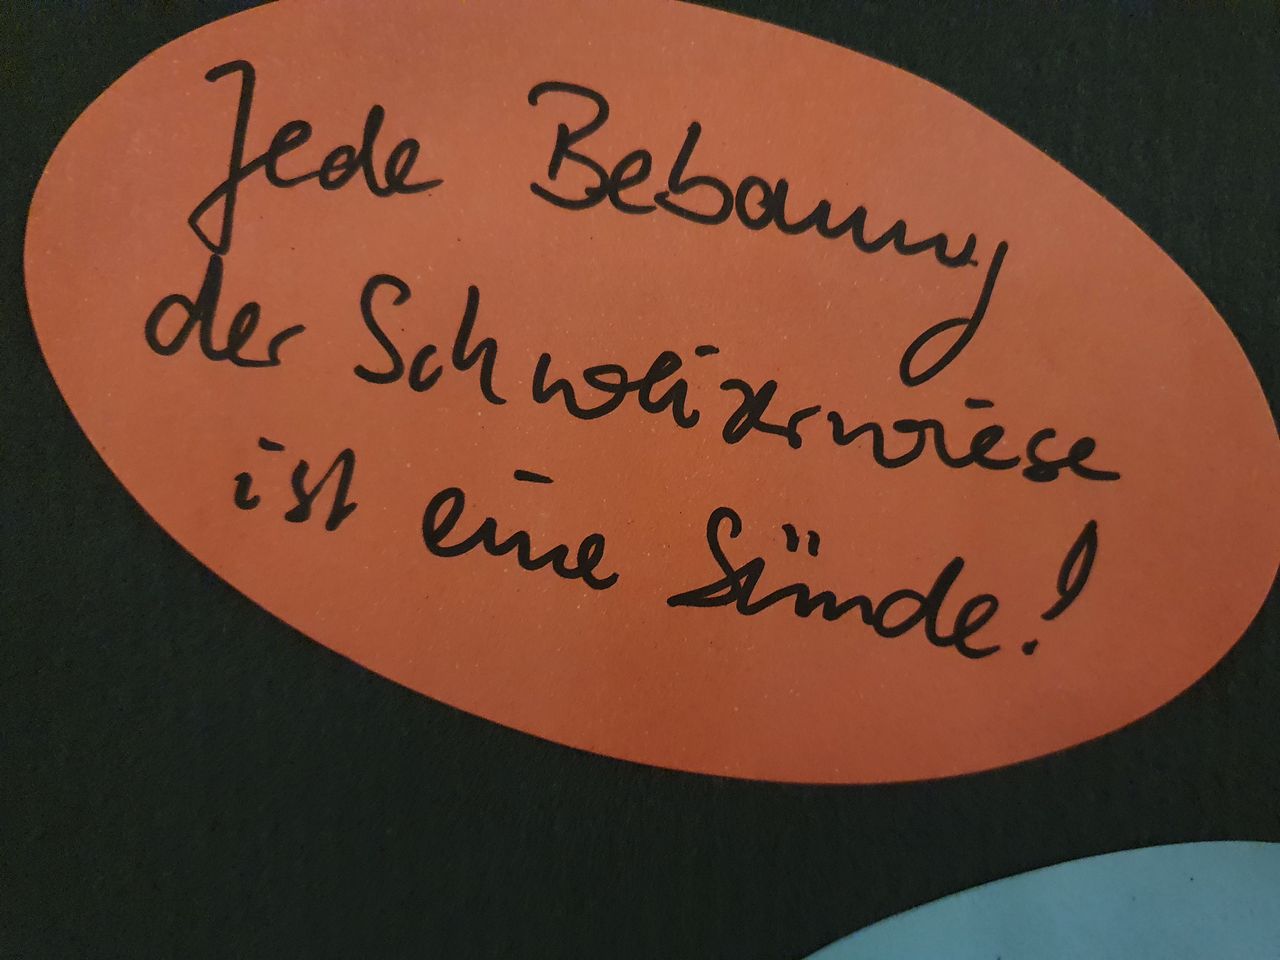 Jede Bebauung
der Schweizerwiese
ist eine Sünde!